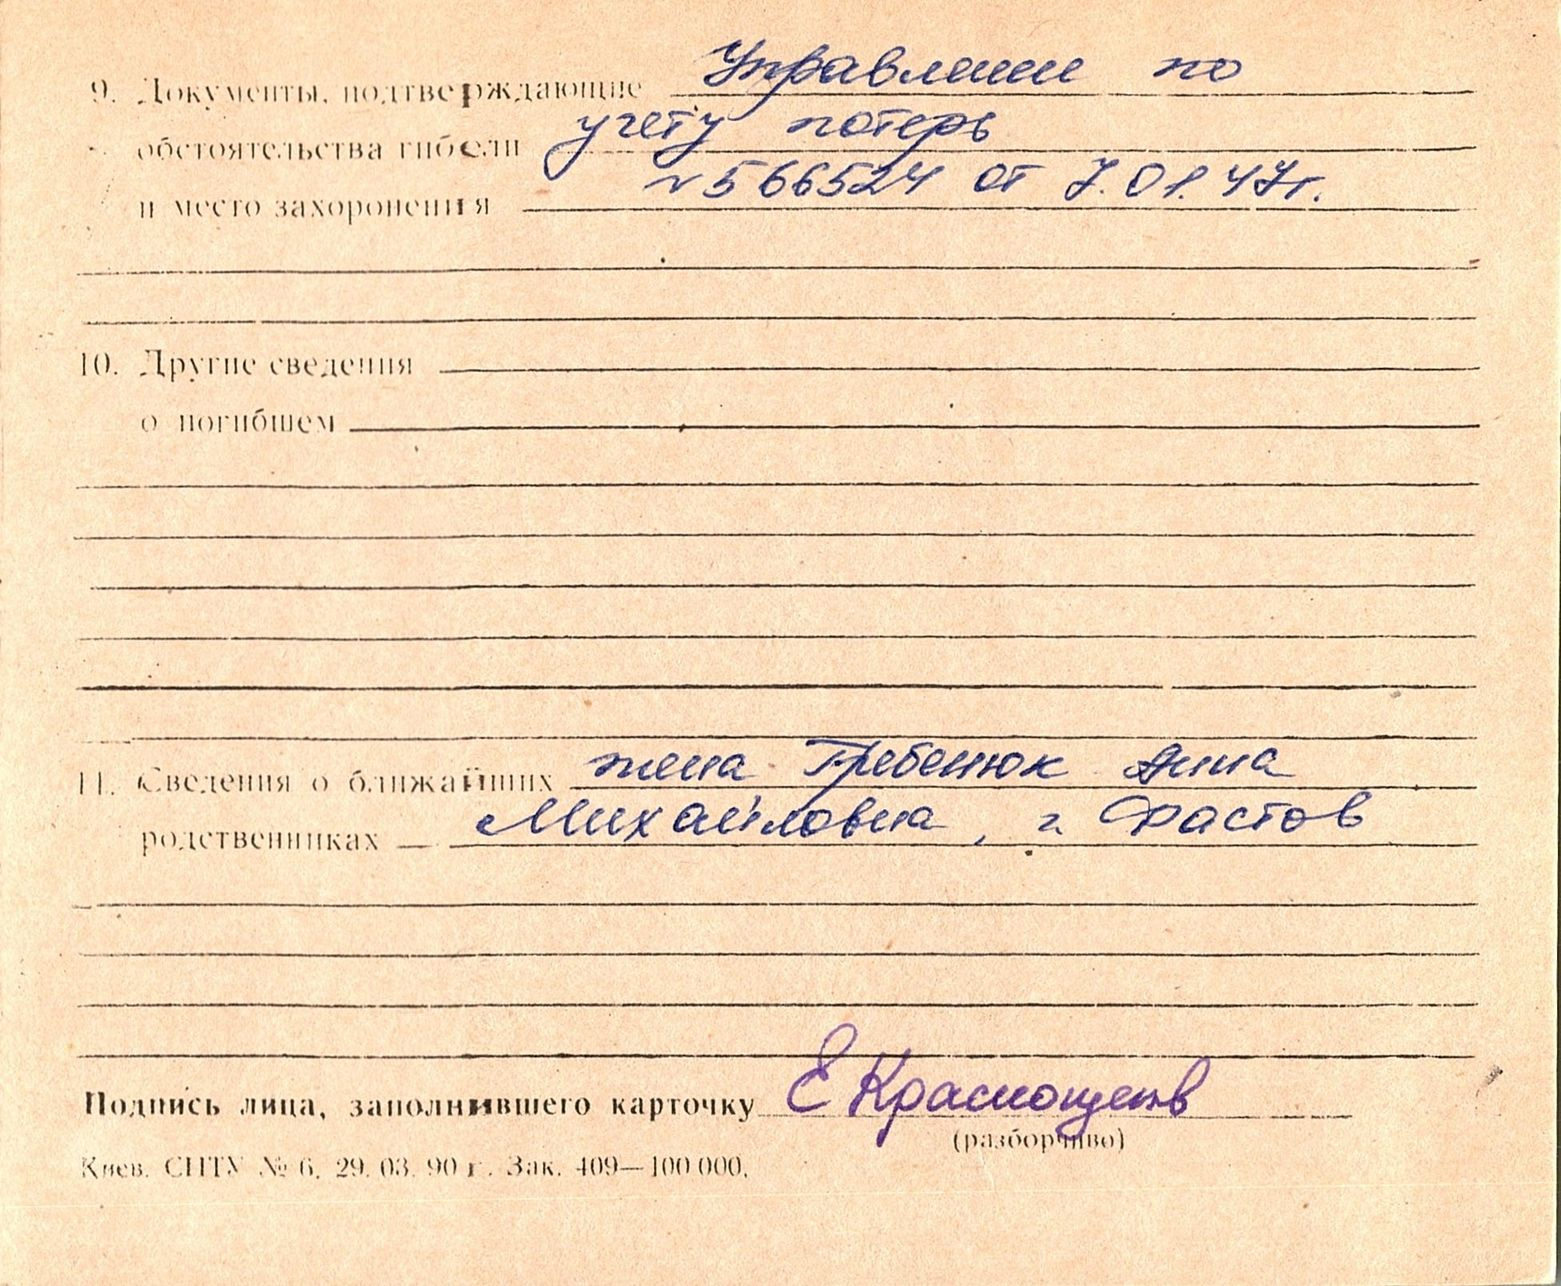 9. Документы, подтверждающие Управление по
обстоятельства гибели учету потерь
и место захоронения № 566524 от 7.01.47г.
10. Другие сведения
о погибшем
11. Сведения о ближайших жена Гребенюк Анна
родственниках Михайловна, г. Фастов
Подпись лица, заполнившего карточку Е Краснощеков
(разборчиво)
Киев. СПТУ № 6. 29. 03. 90 г. Зак. 409—100 000.